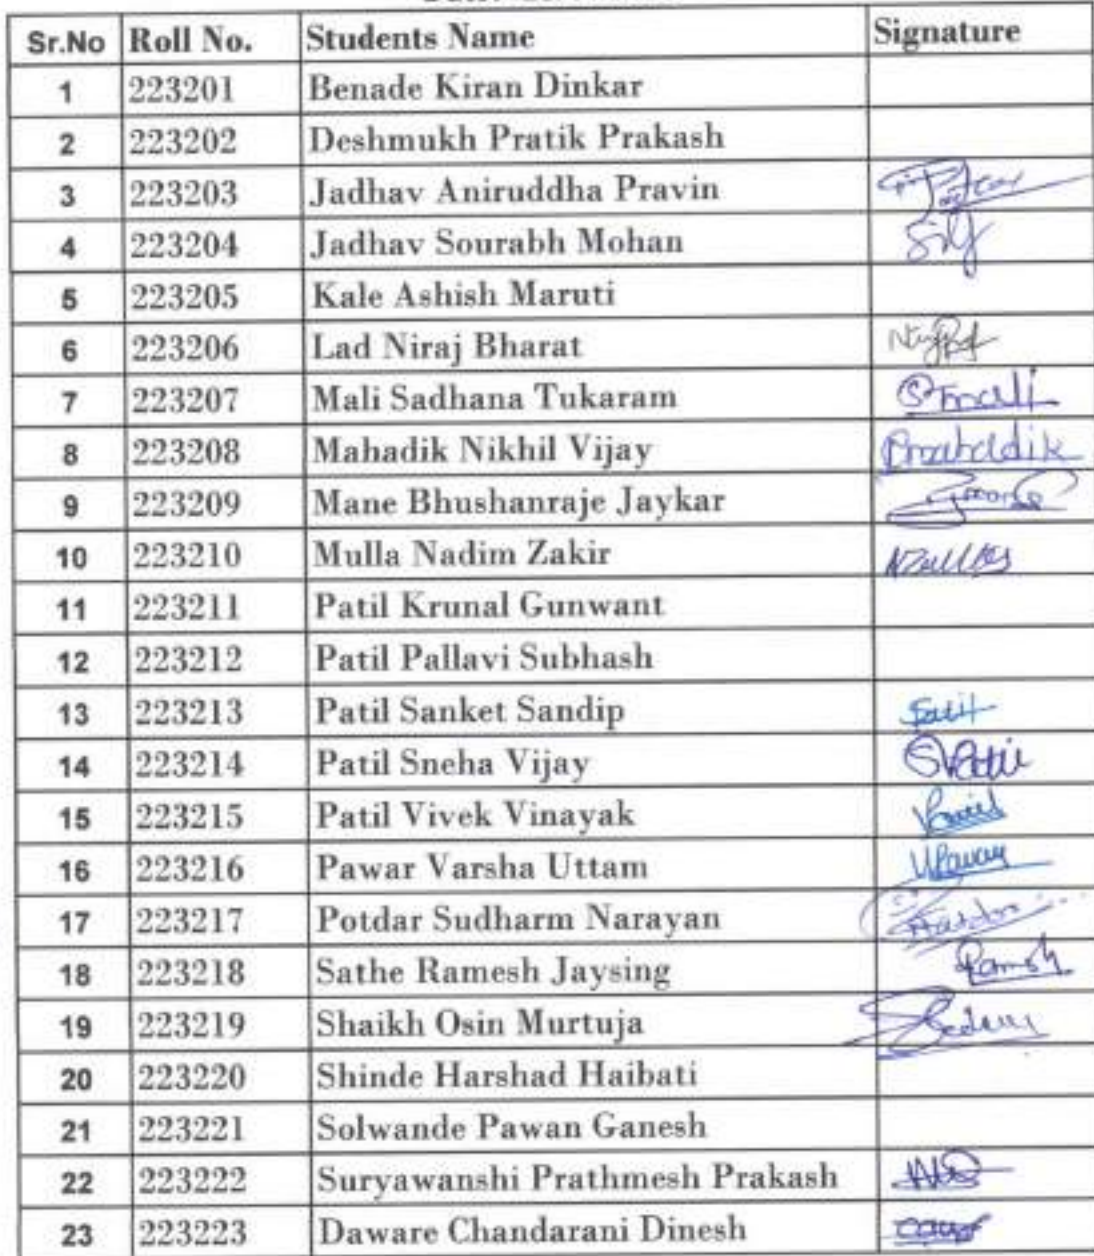 Sr.No Roll No. Students Name Signature
1 223201 Benade Kiran Dinkar
2 223202 Deshmukh Pratik Prakash
3 223203 Jadhav Aniruddha Pravin
4 223204 Jadhav Sourabh Mohan
5 223205 Kale Ashish Maruti
6 223206 Lad Niraj Bharat
7 223207 Mali Sadhana Tukaram
8 223208 Mahadik Nikhil Vijay
9 223209 Mane Bhushanraje Jaykar
10 223210 Mulla Nadim Zakir
11 223211 Patil Krunal Gunwant
12 223212 Patil Pallavi Subhash
13 223213 Patil Sanket Sandip
14 223214 Patil Sneha Vijay SVPatil
15 223215 Patil Vivek Vinayak
16 223216 Pawar Varsha Uttam
17 223217 Potdar Sudharm Narayan
18 223218 Sathe Ramesh Jaysing
19 223219 Shaikh Osin Murtuja
20 223220 Shinde Harshad Haibati
21 223221 Solwande Pawan Ganesh
22 223222 Suryawanshi Prathmesh Prakash
23 223223 Daware Chandarani Dinesh